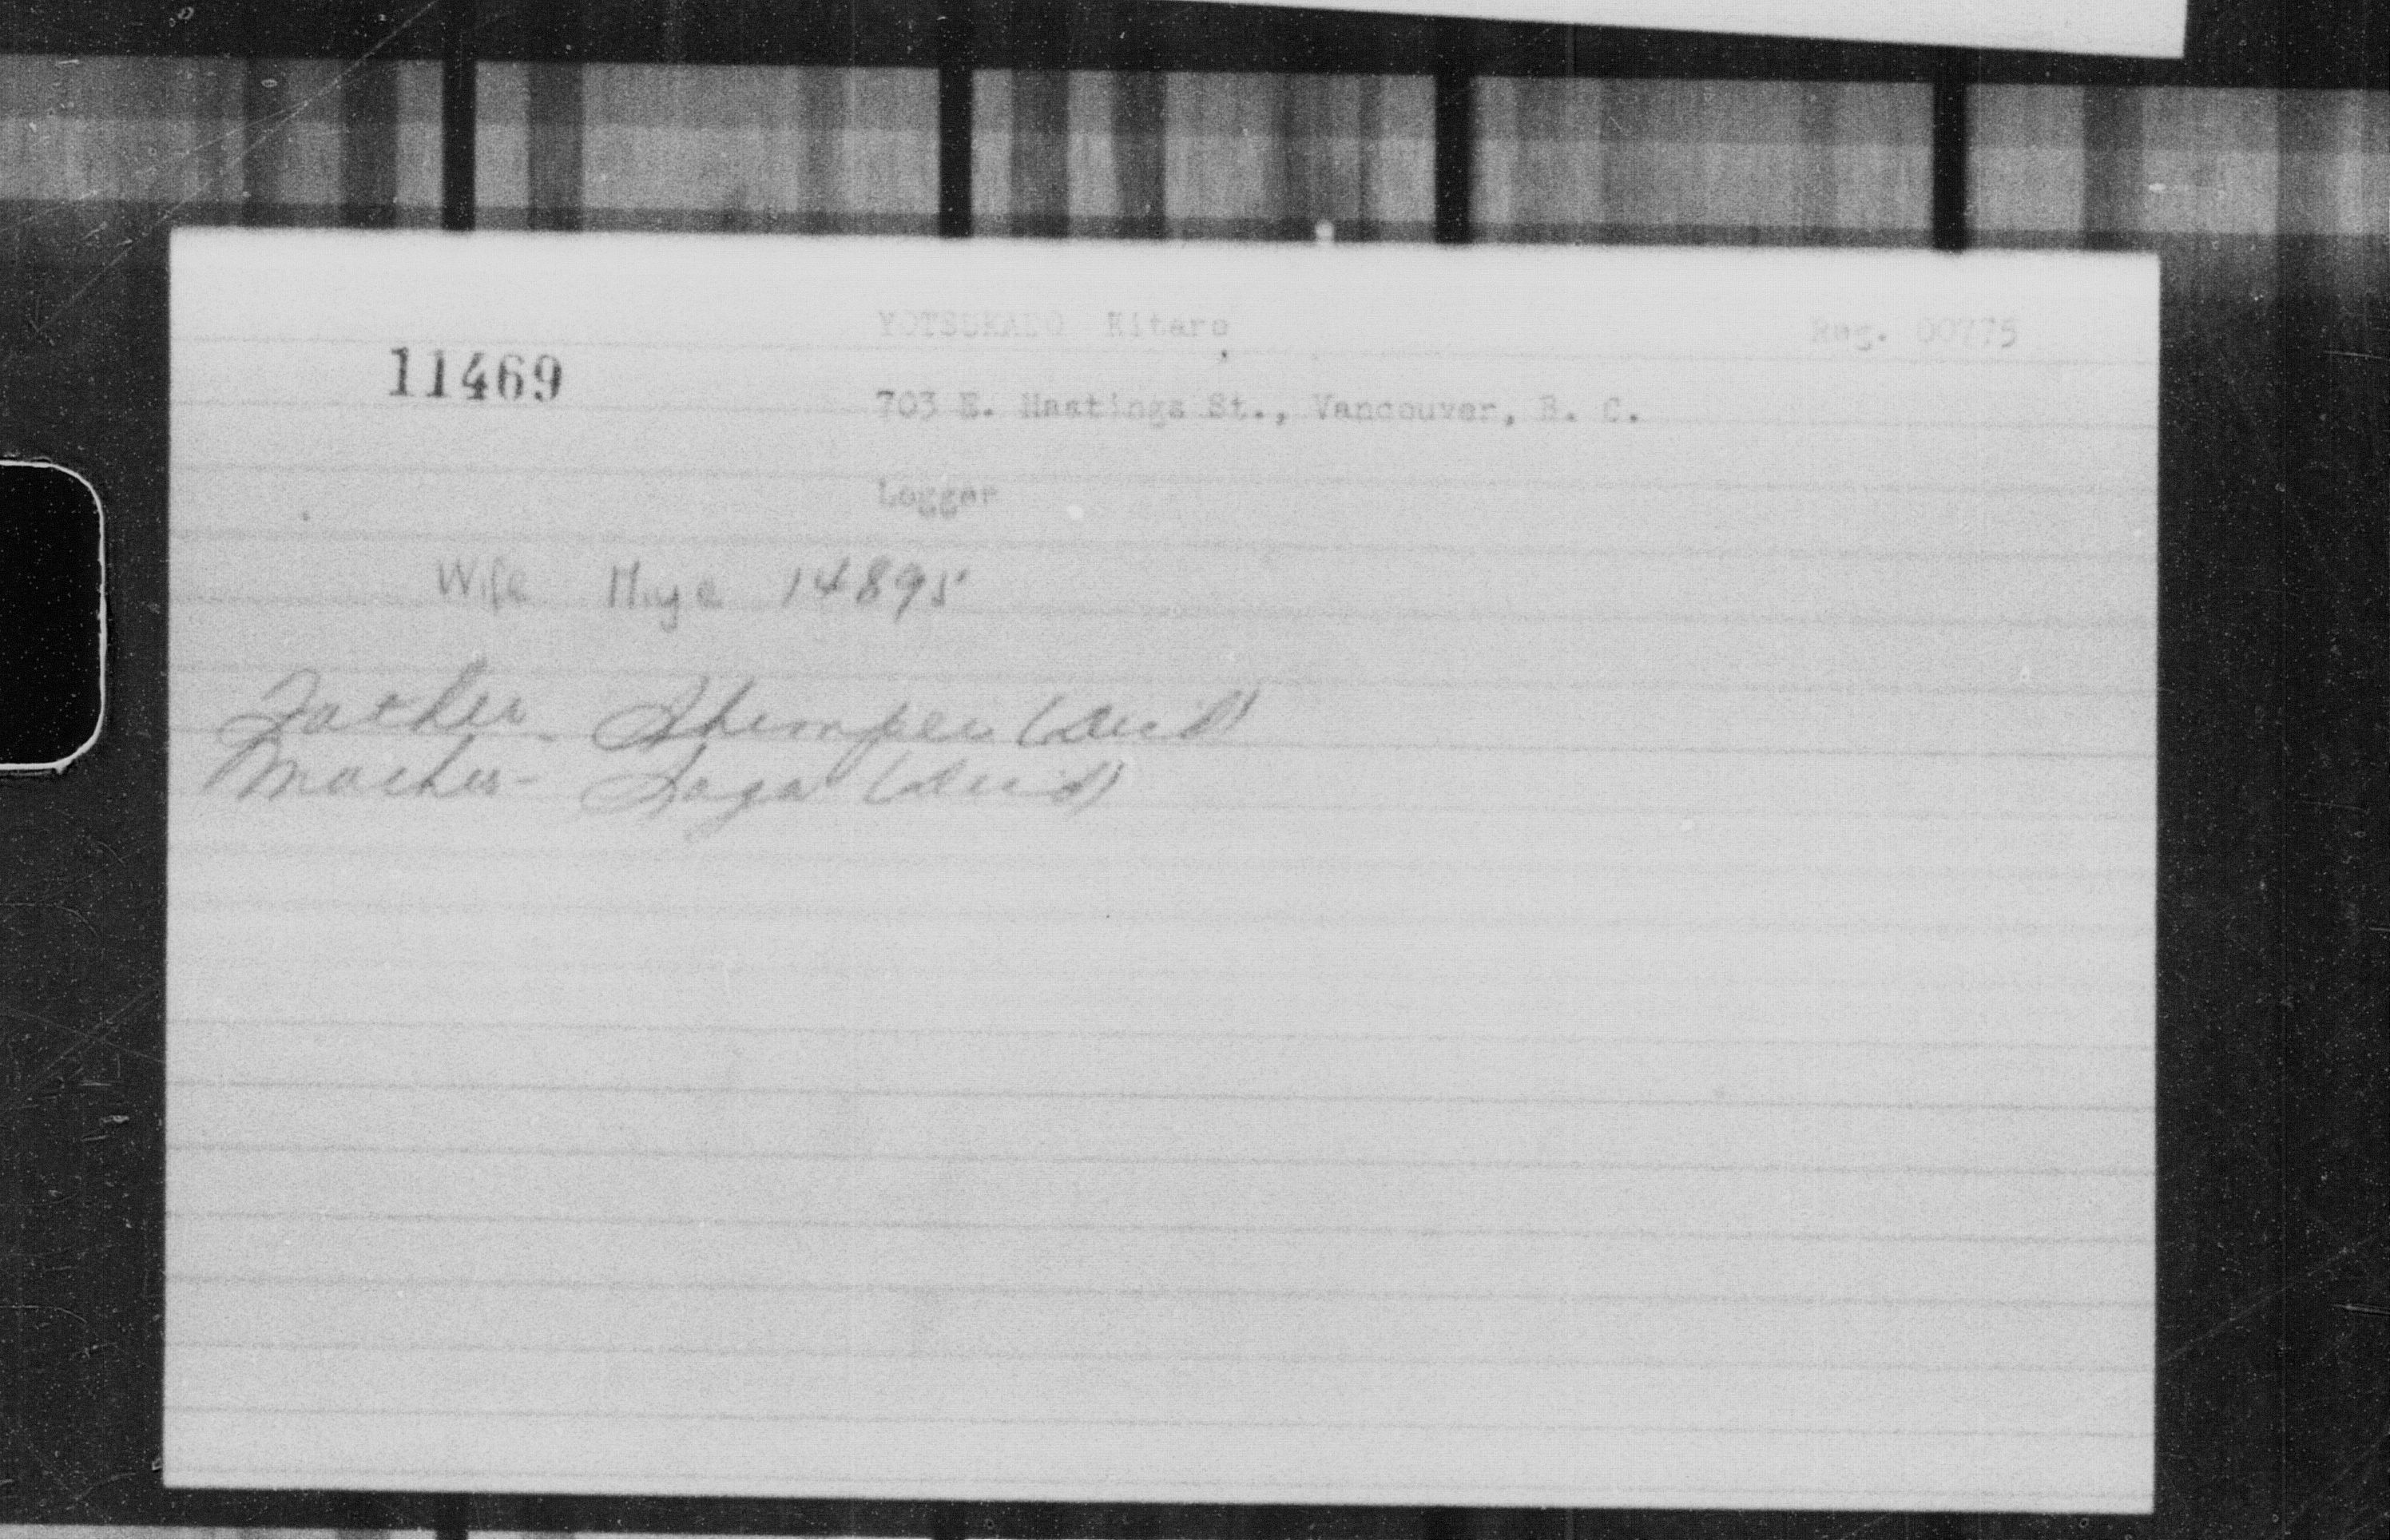 YOTSUKADO Kitaro Reg. 00775
11469
703 E. Hastings St., Vancouver, B. C.
Logger
Wife Miye 14895
Father - Shimpei (Dec'd)
Mother - Saga (Dec'd)